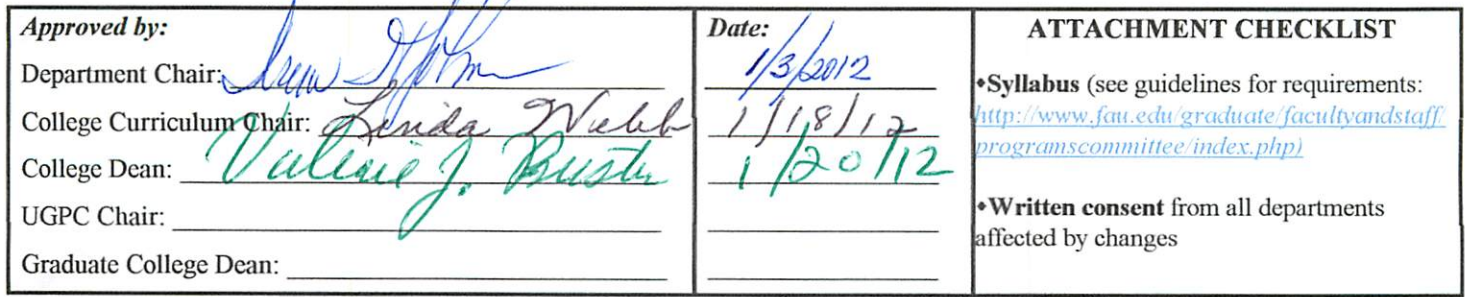 Approved by:
Department Chair:
College Curriculum Chair: Linda Webb
College Dean: Valerie J.
UGPC Chair:
Graduate College Dean:
Date:
1/3/2012
1/18/12
1/20/12
ATTACHMENT CHECKLIST
•Syllabus (see guidelines for requirements:
http://www.fau.edu/graduate/facultyandstaff/
programscommittee/index.php)
•Written consent from all departments
affected by changes